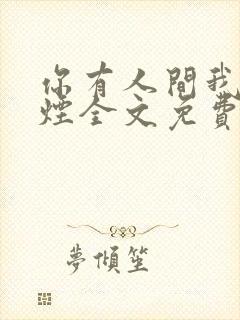 你有人間我
煙全文免費
夢傾笙